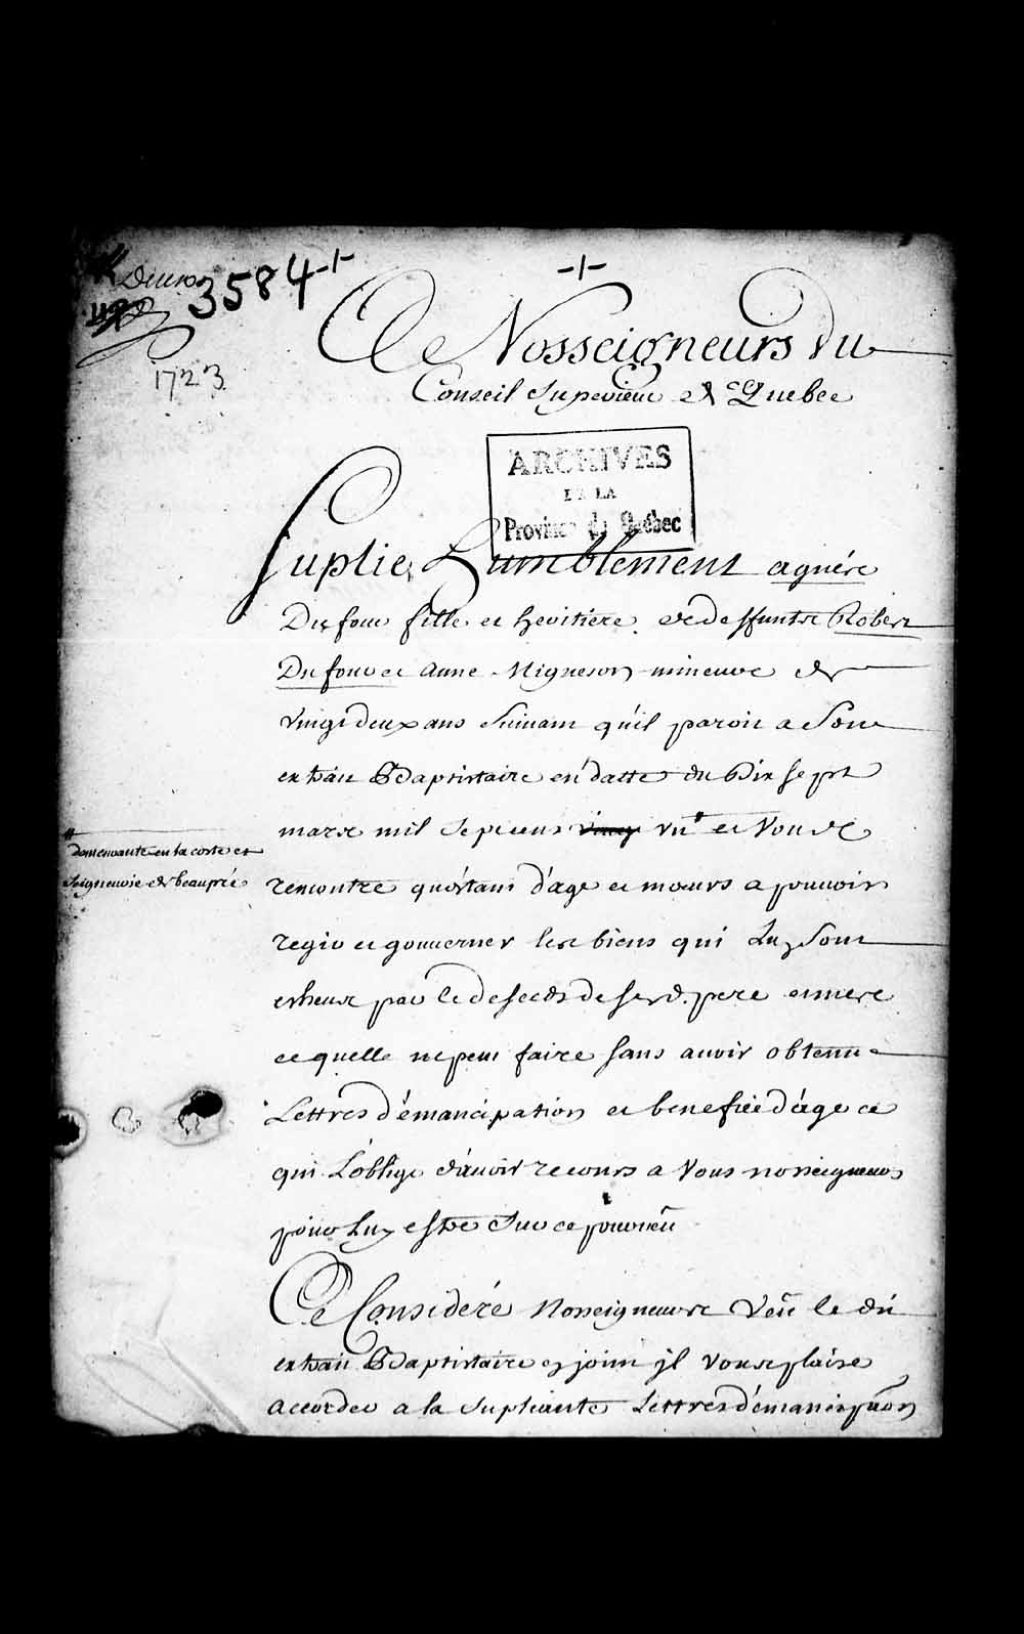 3584 -1-
-1-
1723
A Nosseigneurs du
Conseil Superieur de Quebec
ARCHIVES
DE LA
Province de Québec
Suplie humblement agnére
Dufour fille et heritiere de deffuntz Robert
Dufour et Anne Migneron mineure de
vingt deux ans suivant qu'il paroit a son
extrait Baptistaire en datte du dix sept
mars mil sept cens vn# et vous
remontre qu'étant d'age et moeurs a pouvoir
regir et gouverner les biens qui luy sont
escheus par le deseds de sesd. pere et mere
ce quelle ne peut faire sans avoir obtenu
Lettres d'émancipation et benefice d'age ce
qui L'oblige d'avoir recours a Vous nosseigneurs
pour luy estre sur ce pourveu
# demeurante en la coste et
seigneurie de beaupré
Ce Consideré Nosseigneurs Veu le dit
extrait Baptistaire cy joint jl vous plaise
accorder a la Supliante Lettres d'émancipation